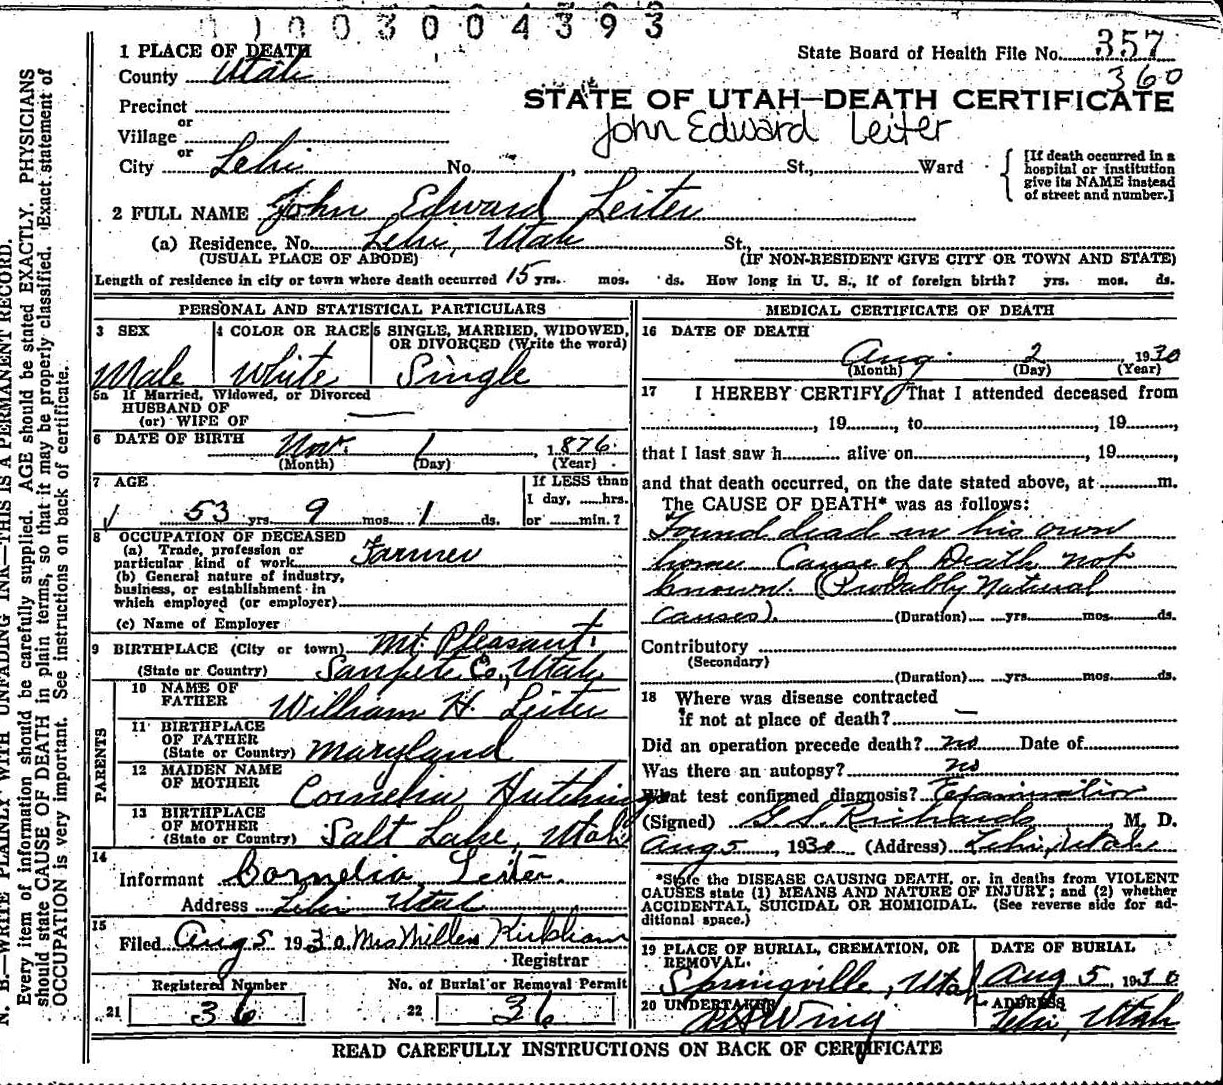 1003004393
1 PLACE OF DEATH
State Board of Health File No. 357
County Utah
360
Precinct
STATE OF UTAH—DEATH CERTIFICATE
or
John Edward Leiter
Village
or
City Lehi No. , St., Ward
[If death occurred in a
hospital or institution
give its NAME instead
of street and number.]
2 FULL NAME John Edward Leiter
(a) Residence, No. Lehi, Utah St.,
(USUAL PLACE OF ABODE) (IF NON-RESIDENT GIVE CITY OR TOWN AND STATE)
Length of residence in city or town where death occurred 15 yrs. mos. ds. How long in U. S., if of foreign birth? yrs. mos. ds.
PERSONAL AND STATISTICAL PARTICULARS
3 SEX
Male
4 COLOR OR RACE
White
5 SINGLE, MARRIED, WIDOWED,
OR DIVORCED (Write the word)
Single
5a If Married, Widowed, or Divorced
HUSBAND OF
(or) WIFE OF —
6 DATE OF BIRTH Nov. 1, 1876
(Month) (Day) (Year)
7 AGE
53 yrs. 9 mos. 1 ds.
If LESS than
1 day, ......hrs.
or ......min.?
8 OCCUPATION OF DECEASED
(a) Trade, profession or
particular kind of work Farmer
(b) General nature of industry,
business, or establishment in
which employed (or employer)
(c) Name of Employer
9 BIRTHPLACE (City or town) Mt. Pleasant,
(State or Country) Sanpete Co., Utah
PARENTS
10 NAME OF
FATHER William H. Leiter
11 BIRTHPLACE
OF FATHER
(State or Country) Maryland
12 MAIDEN NAME
OF MOTHER Cornelia Hutchings
13 BIRTHPLACE
OF MOTHER
(State or Country) Salt Lake, Utah
14
Informant Cornelia Leiter
Address Lehi Utah
15
Filed Aug 5 1930 Mrs Millen Kirkham
Registrar
Registered Number
21 36
No. of Burial or Removal Permit
22 36
MEDICAL CERTIFICATE OF DEATH
16 DATE OF DEATH
Aug. 2 1930
(Month) (Day) (Year)
17 I HEREBY CERTIFY, That I attended deceased from
, 19 , to , 19 ,
that I last saw h alive on , 19 ,
and that death occurred, on the date stated above, at m.
The CAUSE OF DEATH* was as follows:
Found dead in his own
home Cause of Death not
known. (Probably Natural
causes). (Duration) yrs. mos. ds.
Contributory
(Secondary)
(Duration) yrs. mos. ds.
18 Where was disease contracted
if not at place of death? —
Did an operation precede death? no Date of
Was there an autopsy? no
What test confirmed diagnosis? Examination
(Signed) G. S. Richards, M. D.
Aug 5, 1930 (Address) Lehi, Utah
*State the DISEASE CAUSING DEATH, or, in deaths from VIOLENT
CAUSES state (1) MEANS AND NATURE OF INJURY; and (2) whether
ACCIDENTAL, SUICIDAL OR HOMICIDAL. (See reverse side for ad-
ditional space.)
19 PLACE OF BURIAL, CREMATION, OR
REMOVAL.
Springville, Utah
DATE OF BURIAL
Aug 5, 1930
20 UNDERTAKER
Wing
ADDRESS
Lehi, Utah
READ CAREFULLY INSTRUCTIONS ON BACK OF CERTIFICATE
N. B.—WRITE PLAINLY WITH UNFADING INK—THIS IS A PERMANENT RECORD.
Every item of information should be carefully supplied. AGE should be stated EXACTLY. PHYSICIANS
should state CAUSE OF DEATH in plain terms, so that it may be properly classified. Exact statement of
OCCUPATION is very important. See instructions on back of certificate.